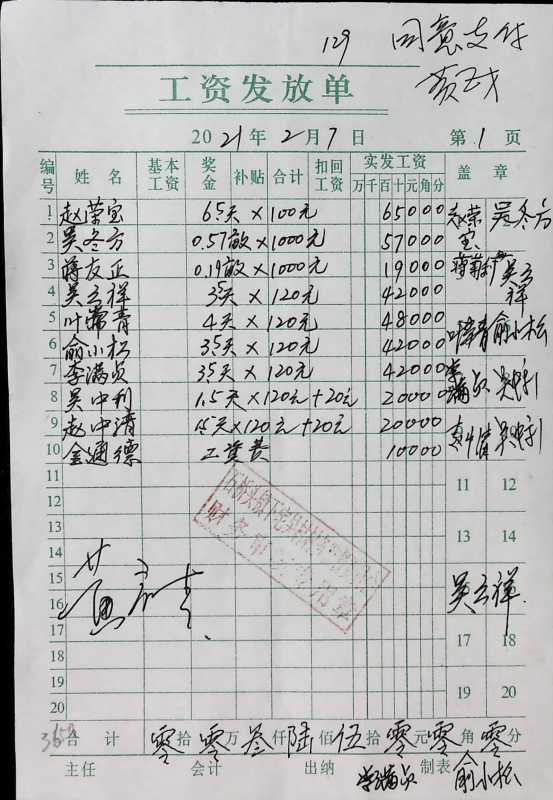 129 同意支付
工资发放单
2021年2月7日 第1页
编号 姓名 基本工资 奖金 补贴 合计 扣回工资 实发工资 万千百十元角分 盖章
1 赵荣宝 6.5天×100元 65000 赵荣宝 吴冬方
2 吴冬方 0.57亩×1000元 57000
3 蒋友正 0.19亩×1000元 19000
4 吴云祥 3.5天×120元 42000 吴云祥
5 叶常青 4天×120元 48000
6 俞小松 3.5天×120元 42000 俞小松
7 李满贞 3.5天×120元 42000 李满贞
8 吴中利 1.5天×120元+20元 20000 吴中利
9 赵中清 1.5天×120元+20元 20000 吴中利
10 金通德 工资 10000
11 11 12
12
13 13 14
14
15
16 吴云祥
17 17 18
18
19 19 20
20
3650 合计 零拾零万叁仟陆佰伍拾零元零角零分
主任 会计 出纳 李满贞 制表 俞小松